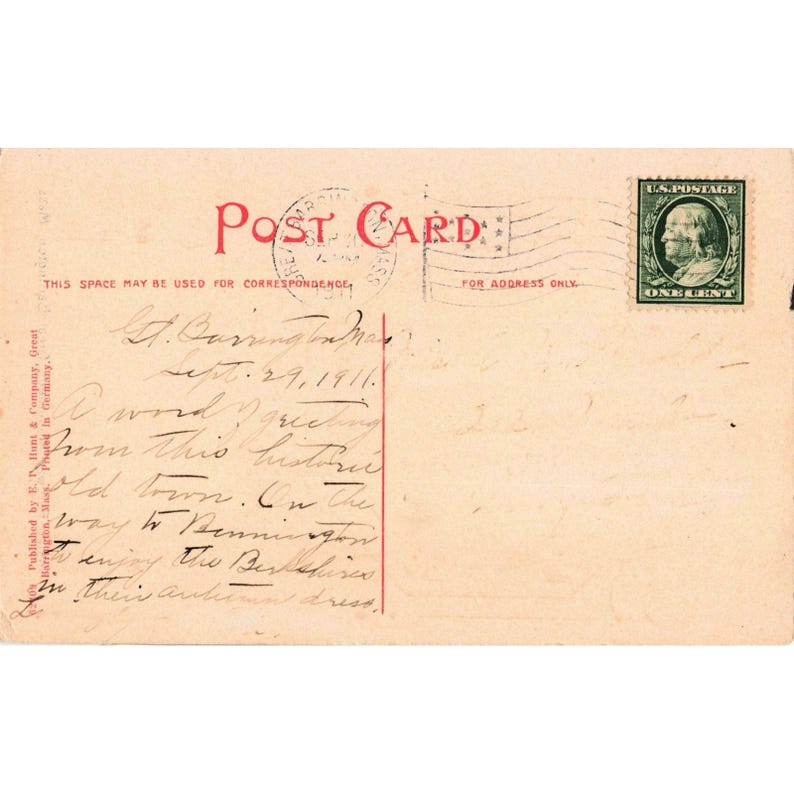 POST CARD
THIS SPACE MAY BE USED FOR CORRESPONDENCE
FOR ADDRESS ONLY.
GREAT BARRINGTON, MASS.
SEP
1911
U.S. POSTAGE
ONE CENT
Gt. Barrington, Mas
Sept. 29, 1911.
A word of greeting
from this historic
old town. On the
way to Bennington
to enjoy the Berkshires
in their autumn dress.
Published by E. P. Hunt & Company, Great
Barrington, Mass. Printed in Germany.